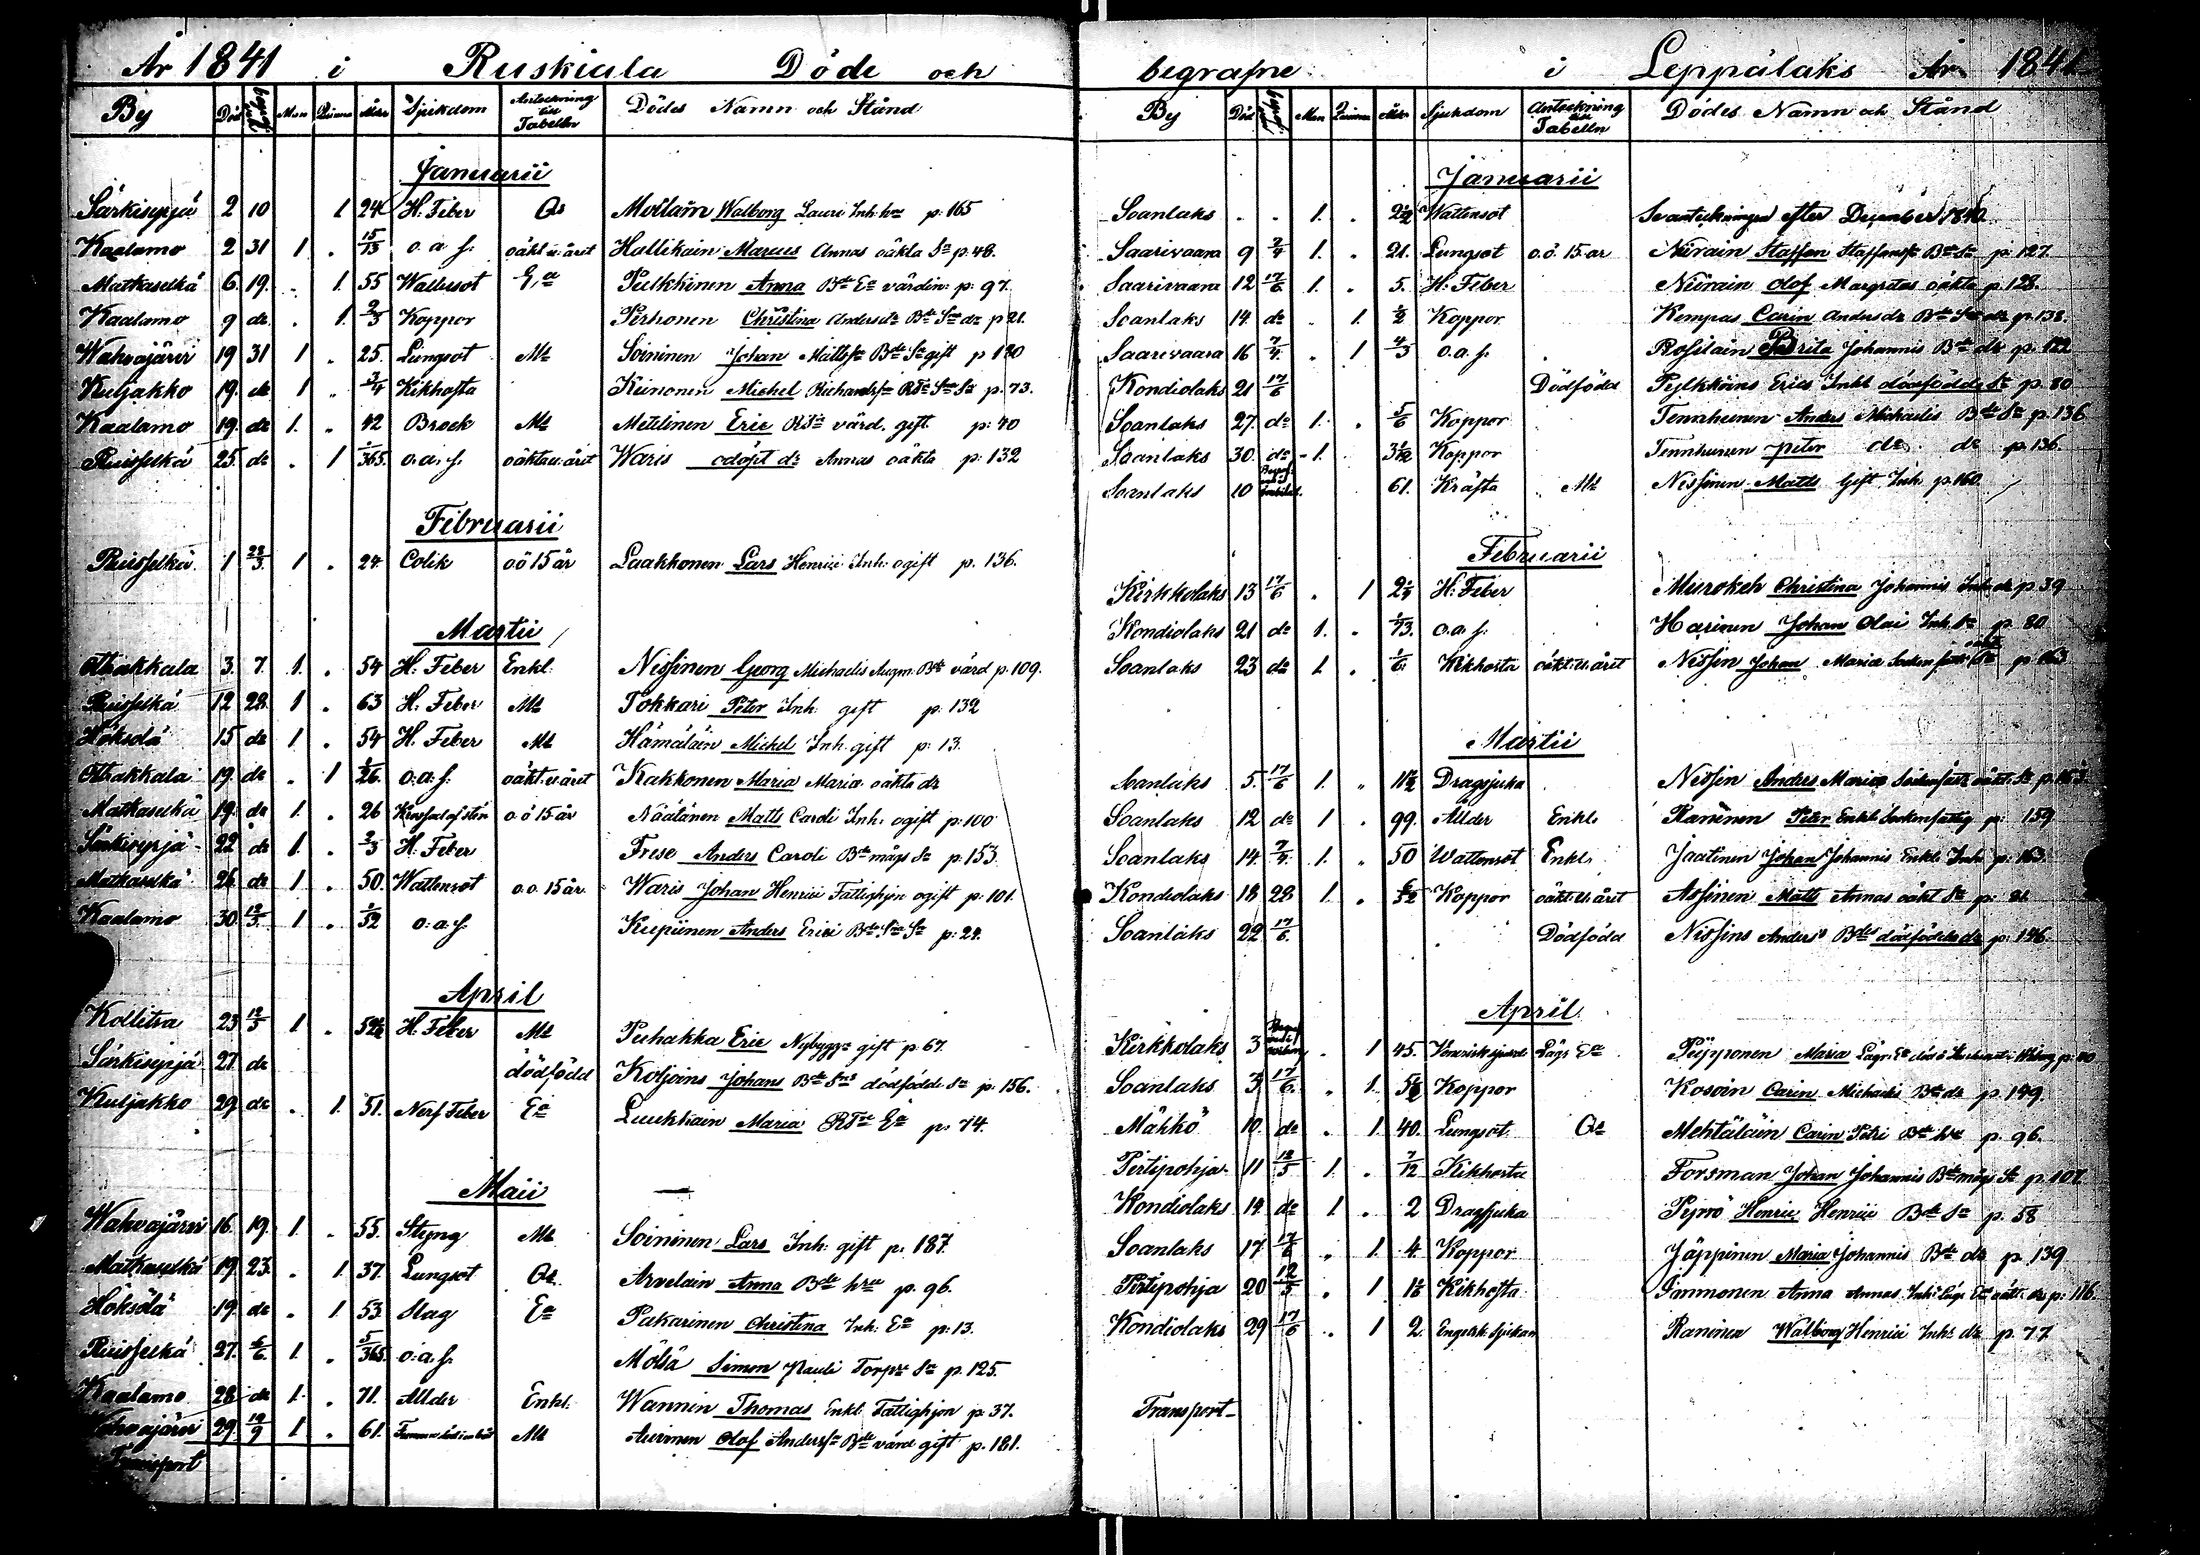 År 1841 i Ruskiala Döde och
By Död begraf. Man Qvinna Ålder Sjukdom Anteckning till Tabellen Dödes Namn och Stånd
Januarii
Särkisyrjä 2 10 1 24 H. Feber Mollain Walborg Lauri Inh. hru p. 165
Kaalamo 2 31 1 " 15/13 o.a.s. oäkt u. året Hallikain Marcus Annas oäkta Sn p. 48.
Matkaselkä 6 19. " 1. 55 Wattusot Ea Pulkkinen Anna Bde Ea värdin: p. 97.
Kaalamo 9 do " 1. 2/3 Koppor Pirhonen Christina Anders dr Bde Sns dr p 21.
Wahvajärvi 19 31 1 " 25. Lungsot Me Soininen Johan Mattss Bde Sn gift p 180
Kuljakko 19. do 1 " 3/4 Kikhosta Kiinonen Michel Richardss p. 73.
Kaalamo 19. do 1. " 42 Brock Me Mielinen Eric värd. gift. p: 40
Ruisselkä 25. do " 1 1/365. o.a.s. oäkta u. året Waris odöpt dr Annas oäkta p. 132
Februarii
Ruisselkä 1 28/3 1 " 24 Colik o ö 15 år Laakkonen Lars Henrici Inh. ogift p. 136.
Martii
Otrakkala 3. 7. 1. " 54 H. Feber Enkl. Nissinen Georg Michaelis Augm. Bde värd p. 109.
Ruisselkä 12 28. 1 " 63 H. Feber Me Tokkari Peter Inh. gift p. 132
Höksölä 15 do 1. " 54 H. Feber Me Hämäläin Michel Inh. gift p. 13.
Otrakkala 19. do " 1 1/26. o.a.s. oäkt. u. året Kakkonen Maria Maria oäkta dr
Matkaselkä 19. do 1. " 26 o ö 15 år Näätänen Matts Caroli Inh. ogift p. 100
Särkisyrjä 22 do 1. " 2/3 H. Feber Frese Anders Caroli Bde mågs Sn p. 153.
Matkaselkä 26 do 1. " 50. Wattusot o.ö. 15 år Waris Johan Henrici Fattighjon ogift p. 101.
Kaalamo 30. 12/5. 1 " 1/52 o.a.s. Kupiinen Anders Erici Bde Sns Sn p. 24.
April
Kollitsa 23 12/5 1. " 52 H. Feber Me Puhakka Eric Nybygg. gift p. 67.
Särkisyrjä 27. do dödfödd Koljoins Johans Bde Sns dödfödde Sn p. 156.
Kuljakko 29. do " 1. 51. Nerf Feber Ea Luukkain Maria Ea p. 74.
Maii
Wahvajärvi 16. 19. 1. " 55. Styng Me Soininen Lars Inh. gift p. 187.
Matkaselkä 19. 23. " 1. 37. Lungsot Arvelain Anna Bde hru p. 96.
Höksölä 19. do " 1. 53 Slag Ea Pakarinen Christina Inh. Ea p. 13.
Ruisselkä 27. 6/6. 1. " 5/365. o.a.s. Mölsä Simon Pauli Torpr Sn p. 125.
Kaalamo 28. do 1. " 71. Ålder Enkl. Wannin Thomas Enkl. Fattighjon p. 37.
Wahvajärvi 29. 19/9 1 " 61. Me Auvinen Olof Anderss Bde värd gift p. 181.
Transport
begrafne i Leppälaks År 1841
By Död begraf. Man Qvinna Ålder Sjukdom Anteckning till Tabellen Dödes Namn och Stånd
Januarii
Soanlaks . . 1. " 2 1/2 Wattusot Se anteckningen efter December 1840.
Saarivaara 9 2/4 1. " 21. Lungsot o.ö. 15 år Niirain Staffan Staffanss Bde Sn p. 127.
Saarivaara 12 17/6 1. " 5. H. Feber Niirain Olof Margretas oäkta p. 128.
Soanlaks 14. do " 1. 1/2 Koppor Kempas Carin Anders dr Bde Sns dr p. 138.
Saarivaara 16 7/4. " 1 4/3 o.a.s. Rossilain Brita Johannis Bde dr p. 122
Kondiolaks 21 17/6 Dödfödd Pylkköins Erics Inhl dödfödde Sn p. 80
Soanlaks 27. do 1. " 5/6 Koppor Tennhunen Anders Michaelis Bde Sn p. 136
Soanlaks 30. do 1. Koppor Tennhunen Peter do do p. 136.
Soanlaks 10 61. Kräfta Me Nissinen Matts Gift Inh. p. 160.
Februarii
Kirkkolaks 13 17/6 " 1 H. Feber Murokeh Christina Johannis Inh. dr p. 39
Kondiolaks 21 do 1. " 1/73. o.a.s. Harinen Johan Olai Inh. Sn p. 80
Soanlaks 23 do 1. " 1/6. Kikhosta oäkt. u. året Nissin Johan Maria p. 163
Martii
Soanlaks 5. 17/6 1. " Dragsjuka Nissin Anders Marias p. 163
Soanlaks 12 do 1 " 99. Ålder Enkl. Räninen Peter Enkl. Sockenfattig p. 159
Soanlaks 14. 7/4. 1. " 50 Wattusot Enkl. Jaatinen Johan Johannis Enkl. Inh. p. 163.
Kondiolaks 18 28 1. " Koppor oäkt. u. året Assinen Matts Annas oäkt Sn p. 81
Soanlaks 22 17/6. Dödfödd Nissins Anders Bdes dödfödde dr p. 146.
April
Kirkkolaks 3 " 1 45. Venerisk sjuk. Ea Piipponen Maria
Soanlaks 3 17/6. " 1. Koppor Kosoin Carin Michaelis Bde dr p. 149.
Mähkö 10. do " 1. 40. Lungsot Mehtäläin Carin Petri Bde hru p. 96.
Pertipohja 11 12/5 1. " 7/12 Kikhosta Forsman Johan Johannis Bde mågs Sn p. 101.
Kondiolaks 14 do 1 " 2 Dragsjuka Pyrrö Henric Henrici Bde Sn p. 58
Soanlaks 17. 17/6 " 1. 4. Koppor Jäppinen Maria Johannis Bde dr p. 139
Pertipohja 20 12/5 " 1 Kikhosta Immonen Anna Annas p. 116.
Kondiolaks 29 17/6 " 1 2. Engelsk Sjukan Raninen Walborg Henrici Inh. dr p. 77
Transport